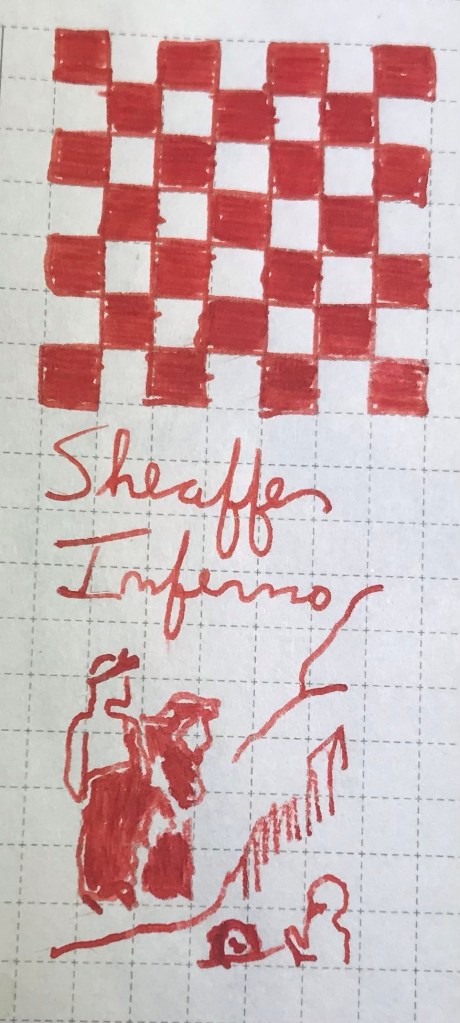 Sheaffer
Inferno